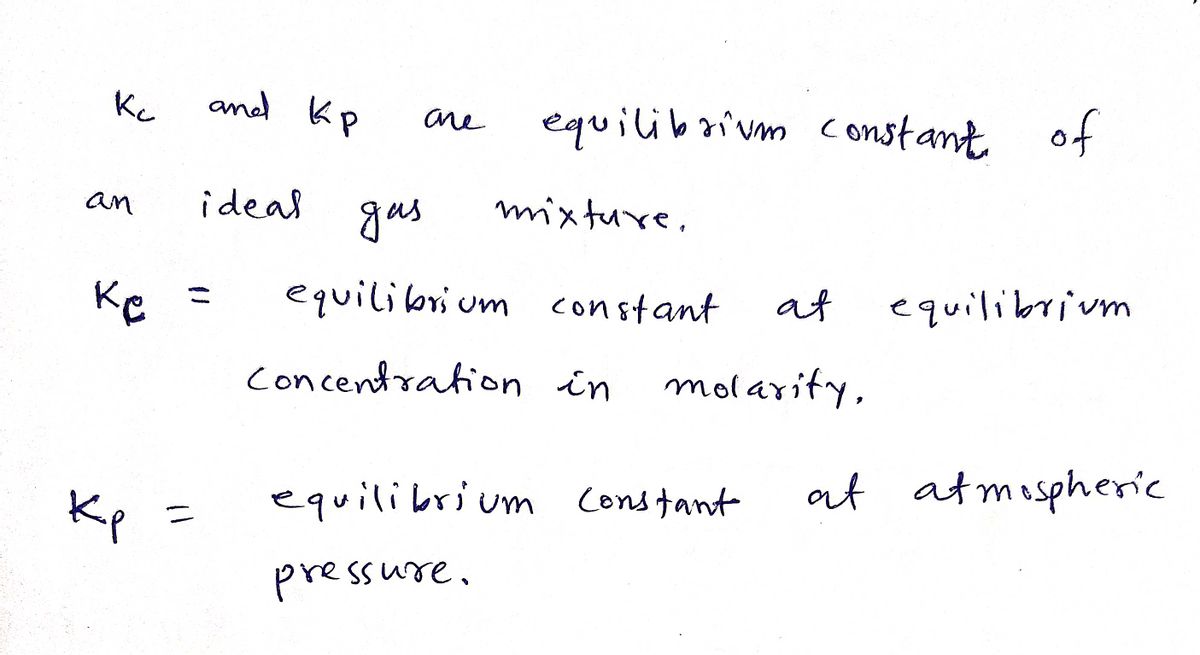 Kc and Kp are equilibrium constant of
an ideal gas mixture.
Kc = equilibrium constant at equilibrium
concentration in molarity.
Kp = equilibrium constant at atmospheric
pressure.